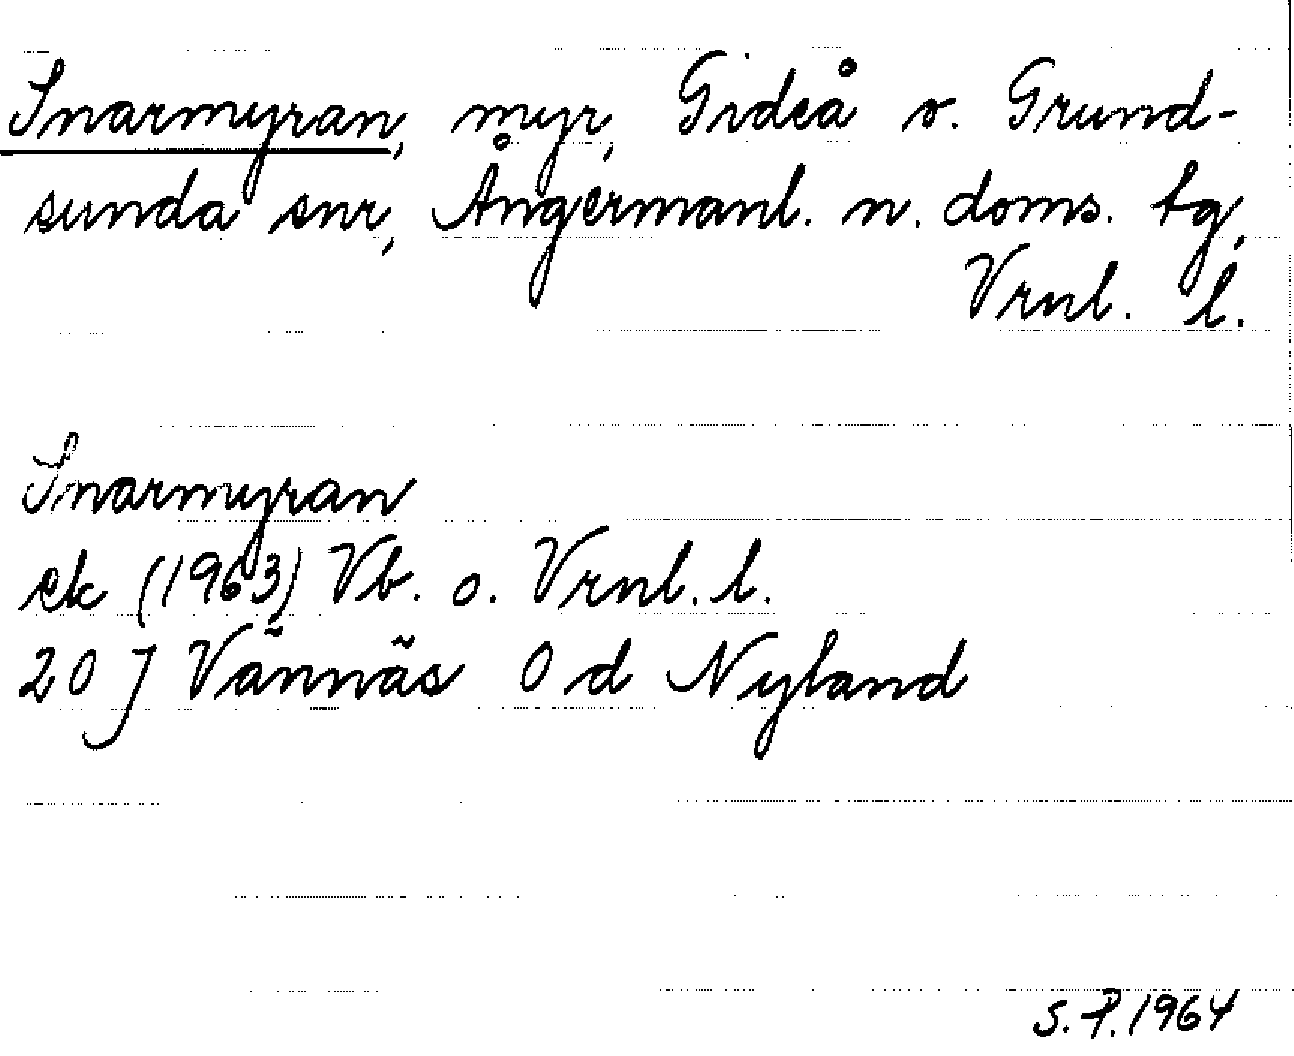 Snarmyran, myr, Gideå o. Grund-
sunda snr, Ångermanl. n. doms. tg,
Vrnl. l.
Snarmyran
ek (1963) Vb. o. Vrnl. l.
20 J Vännäs 0 d Nyland
S. P. 1964